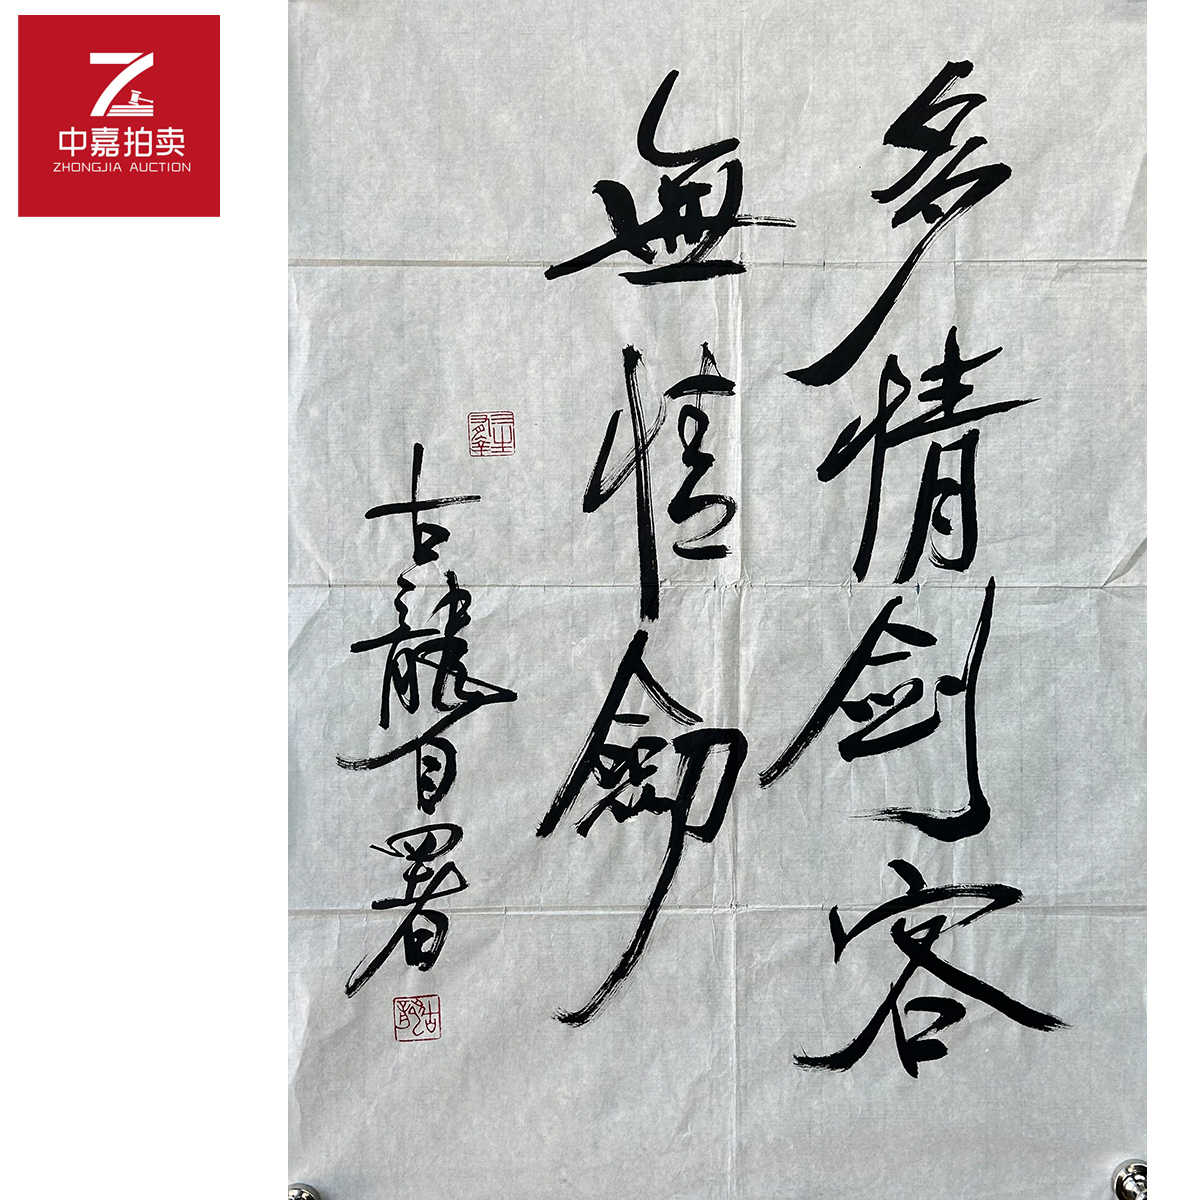 中嘉拍卖
ZHONGJIA AUCTION
多情剑客
無情劍
古龍自署
古龍